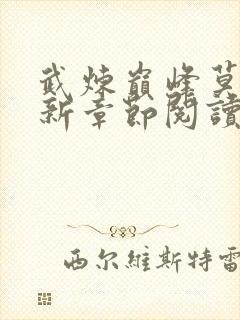 武煉巔峰莫
新章節閱讀
西尔維斯特雷